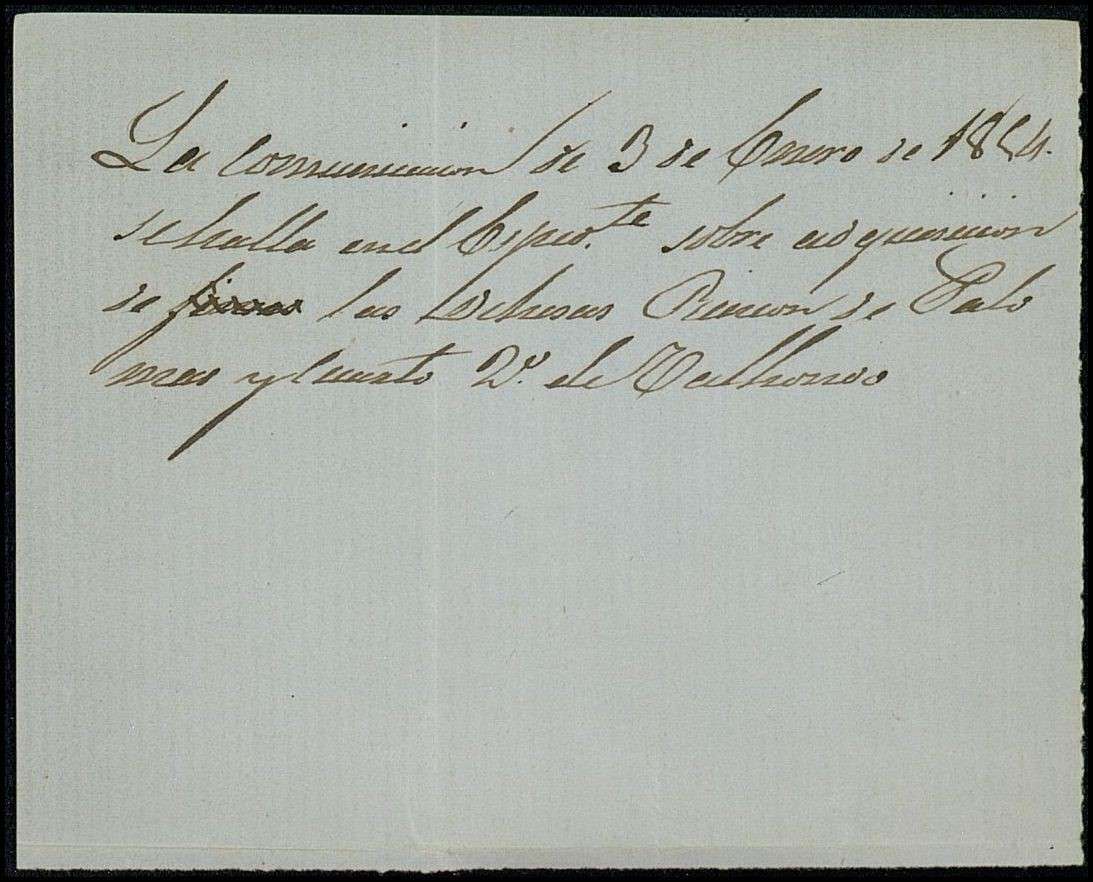 La comunicacion de 3 de Enero de 1854.
se halla en el Exped.te sobre adquisicion
de las Dehesas Rincon de Palo
mas y Cuarto 2º. de